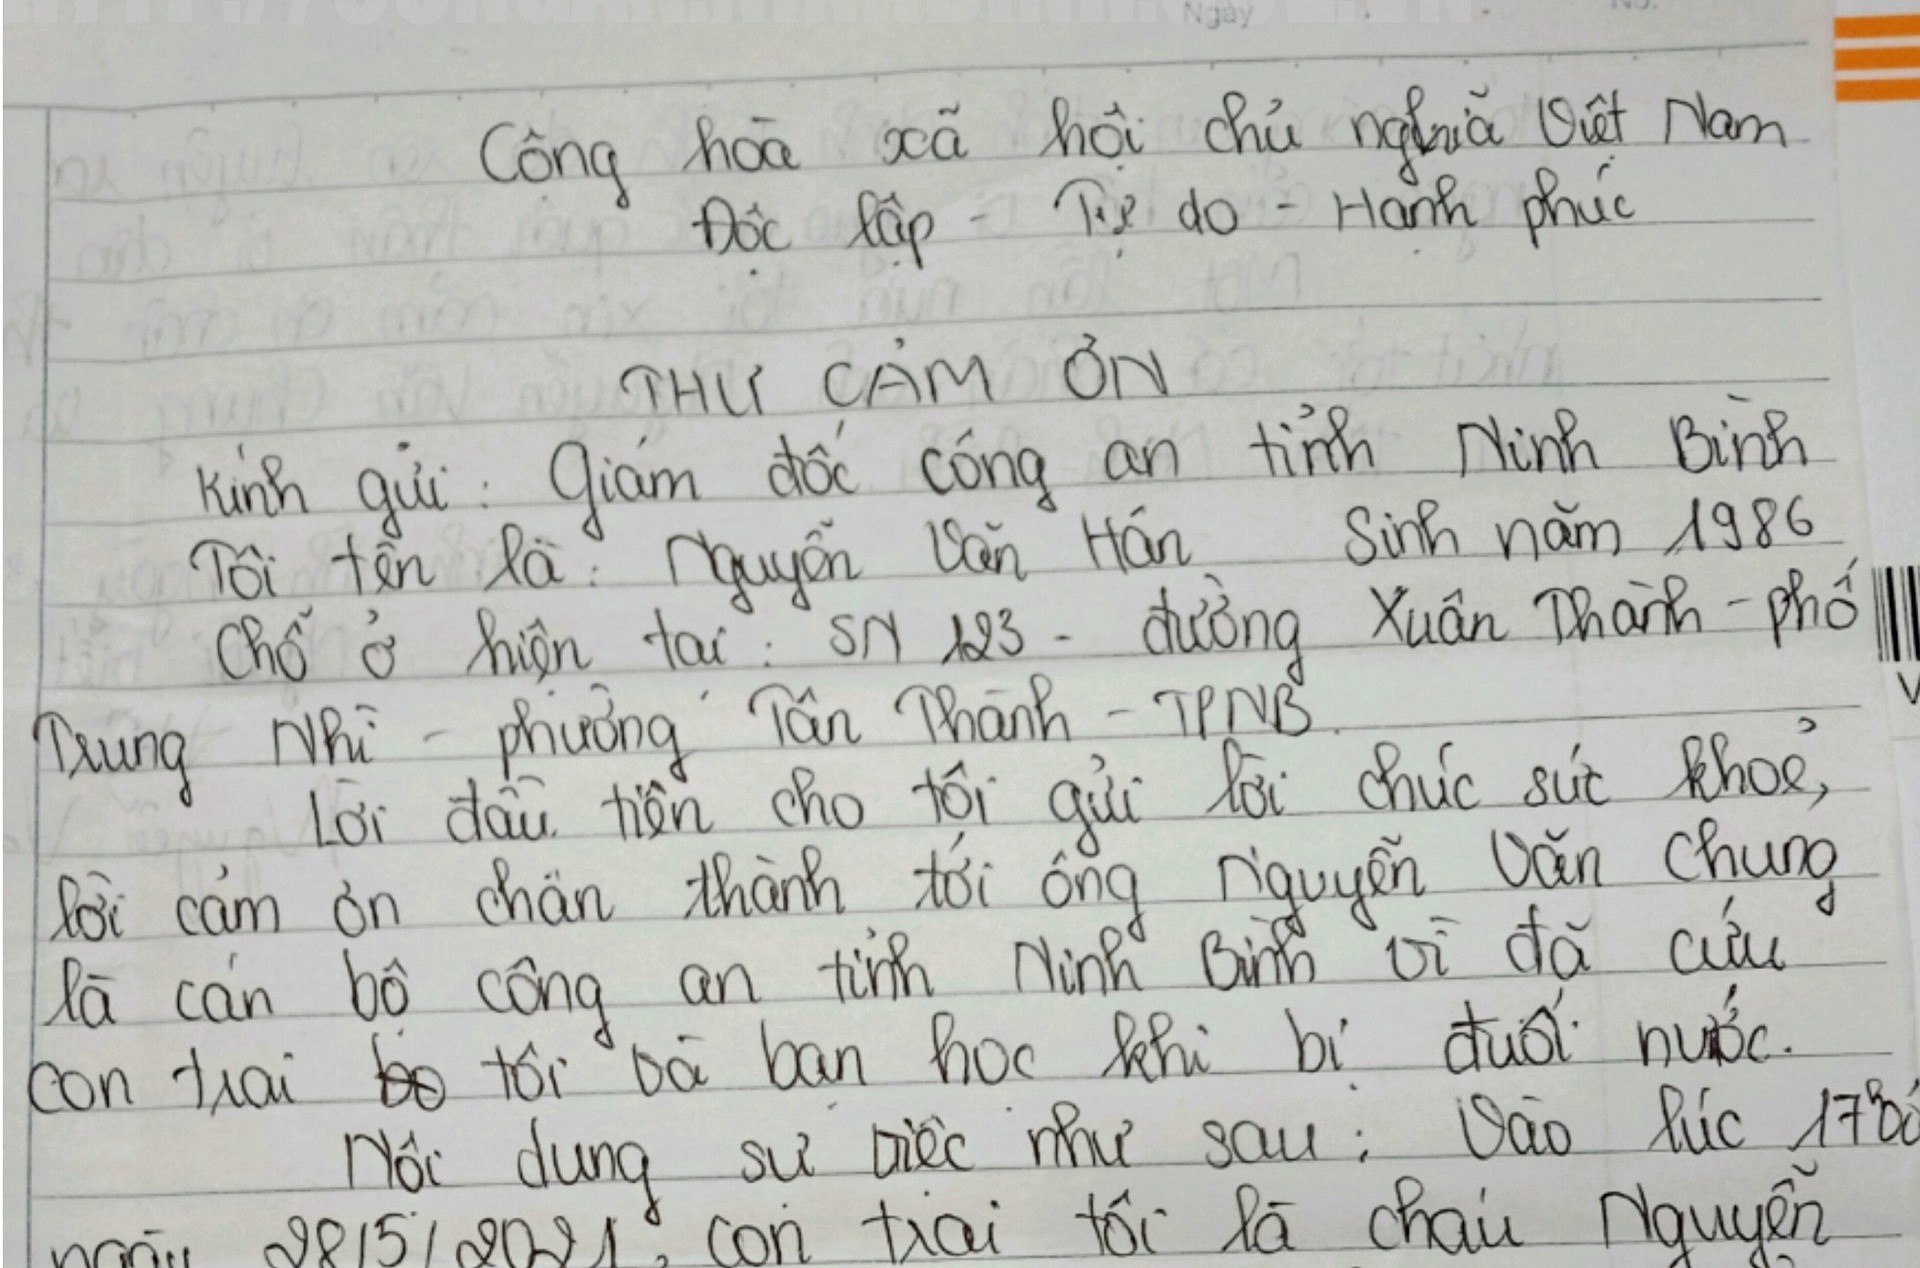 Ngày No.
Cộng hoà xã hội chủ nghĩa Việt Nam
Độc lập - Tự do - Hạnh phúc
THƯ CẢM ƠN
Kính gửi: Giám đốc công an tỉnh Ninh Bình
Tôi tên là: Nguyễn Văn Hán Sinh năm 1986
Chỗ ở hiện tại: SN 123 - đường Xuân Thành - phố
Trung Nhì - phường Tân Thành - TPNB.
Lời đầu tiên cho tôi gửi lời chúc sức khoẻ,
lời cảm ơn chân thành tới ông Nguyễn Văn Chung
là cán bộ công an tỉnh Ninh Bình vì đã cứu
con trai tôi và bạn học khi bị đuối nước.
Nội dung sự việc như sau: Vào lúc
ngày 28/5/2021, con trai tôi là cháu Nguyễn